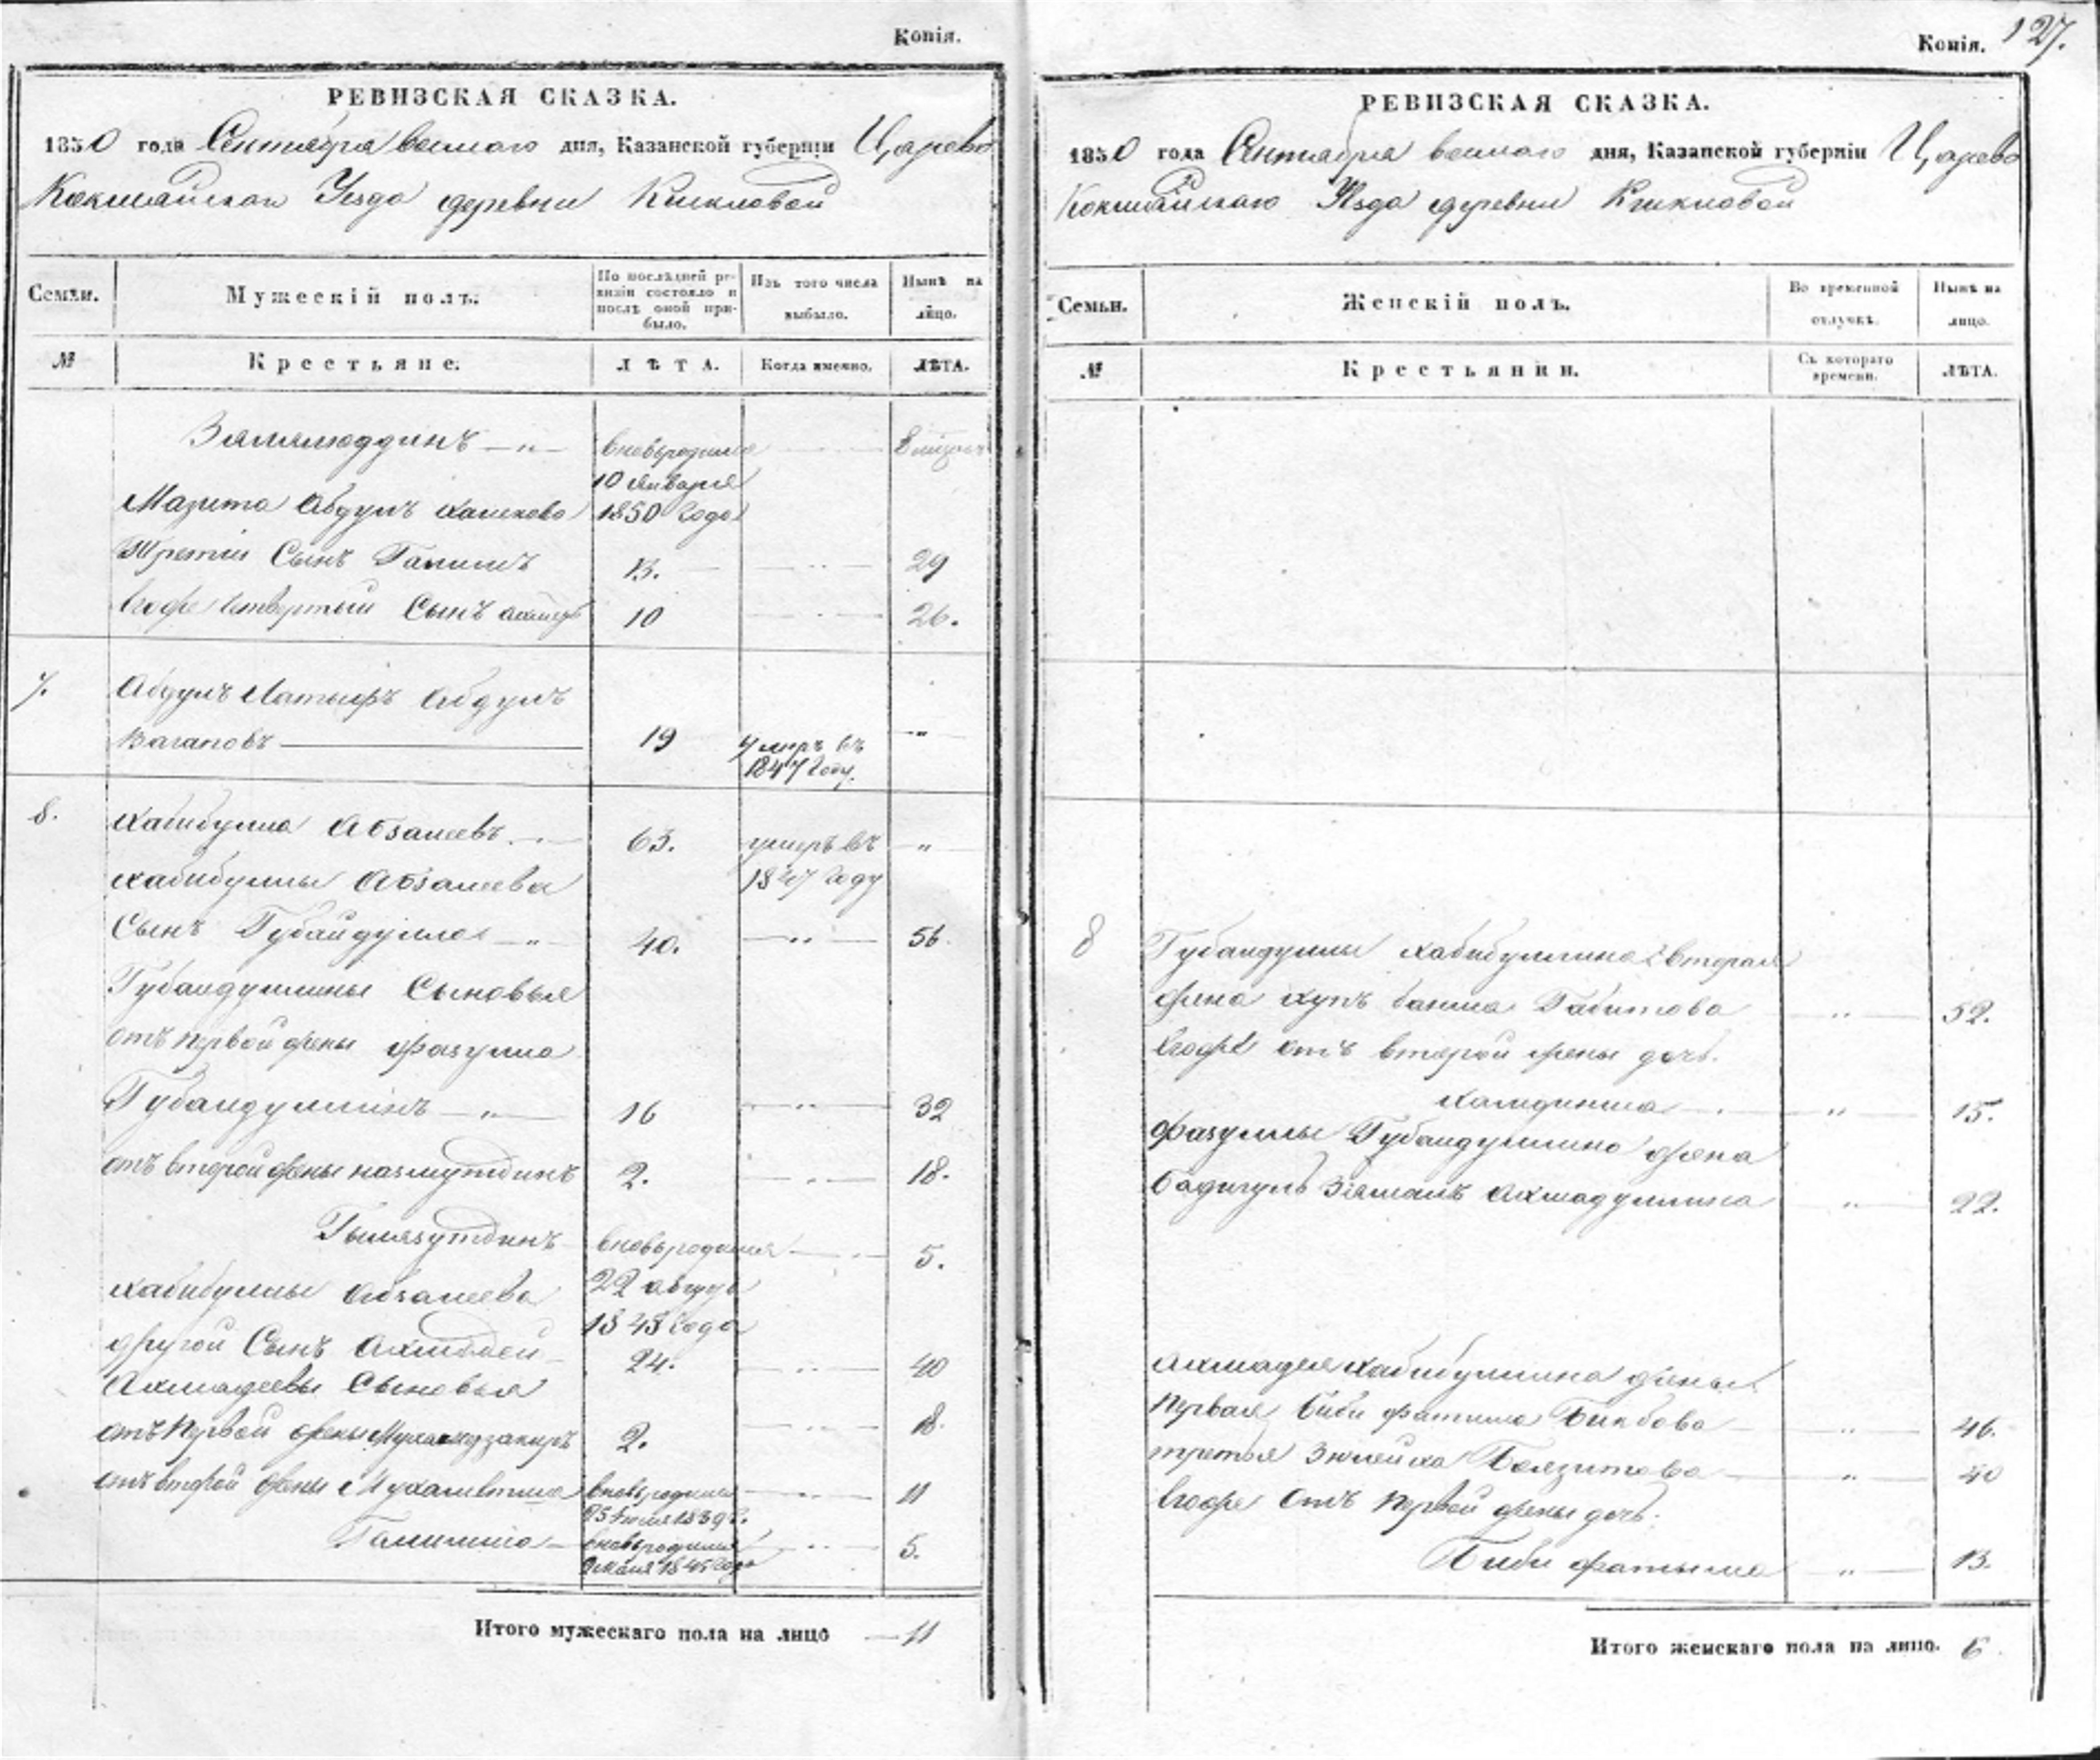 Копія.
РЕВИЗСКАЯ СКАЗКА.
1850 года Сентября восмаго дня, Казанской губерніи Царево
Кокшайскаго Уезда деревни
Семьи.
Мужескій полъ.
По послѣдней ре-
визіи состояло и
послѣ оной при-
было.
Изъ того числа
выбыло.
Нынѣ на
лицо.
№
Крестьяне.
ЛѢТА.
Когда именно.
ЛѢТА.
Зямалюддинъ — „ — вновьродился 8 мѣсяц
10 января
Мазита Абдулъ 1850 года
Третіи Сынъ Галимъ 13. — „ — 29
Егоже четвертый Сынъ 10 — „ — 26.
7. Абдулъ Латыфъ Абдулъ
Вагаповъ 19 Умеръ въ — „
1847 году.
8. Хабибулла Абзалеевъ — „ — 63. умеръ въ „
Хабибуллы Абзалеева 1847 году
Сынъ Губайдулла — „ — 40. — „ — 56.
Губайдуллины Сыновья
отъ первой жены Фазулла
Губайдуллинъ — „ — 16 — „ — 32
отъ второй жены назмутдинъ 2. — „ — 18.
вновьродился — „ — 5.
Хабибуллы Абзалеева 22 август
другой Сынъ Ахмадей 24. — „ — 40
Ахмадеевы Сыновья
отъ первой жены Мухамедзакиръ 2. — „ — 18.
отъ второй жены вновьродился — „ — 11
25 Іюля 1839 г.
Галимша — вновьродился — „ — 5.
9 мая 1845 года
Итого мужескаго пола на лицо — 11
Копія. 127.
РЕВИЗСКАЯ СКАЗКА.
1850 года Сентября восмаго дня, Казанской губерніи Царево
Кокшайскаго Уѣзда деревни
Семьи.
Женскій полъ.
Во временной
отлучкѣ.
Нынѣ на
лицо.
№
Крестьянин.
Съ котораго
времени.
ЛѢТА.
8 Губайдуллы Хабибуллина вторая
жена Хупъ банина Габитова — „ — 52.
Егоже отъ второй жены дочь.
— „ — 15.
Фазуллы Губайдуллина жена
Бадигулъ Зямалъ Ахмадуллина — „ — 22.
Ахмадея Хабибуллина жены.
Первая Биби фатима Бикбова — „ — 46.
третья Зюлейха Баязитова — „ — 40
Егоже отъ первой жены дочь.
Биби фатыма — „ — 13.
Итого женскаго пола на лицо. 6.